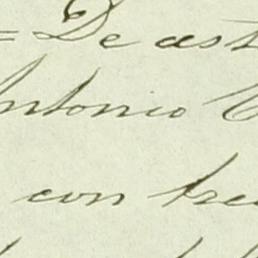 = De ast
Antonio
con tre